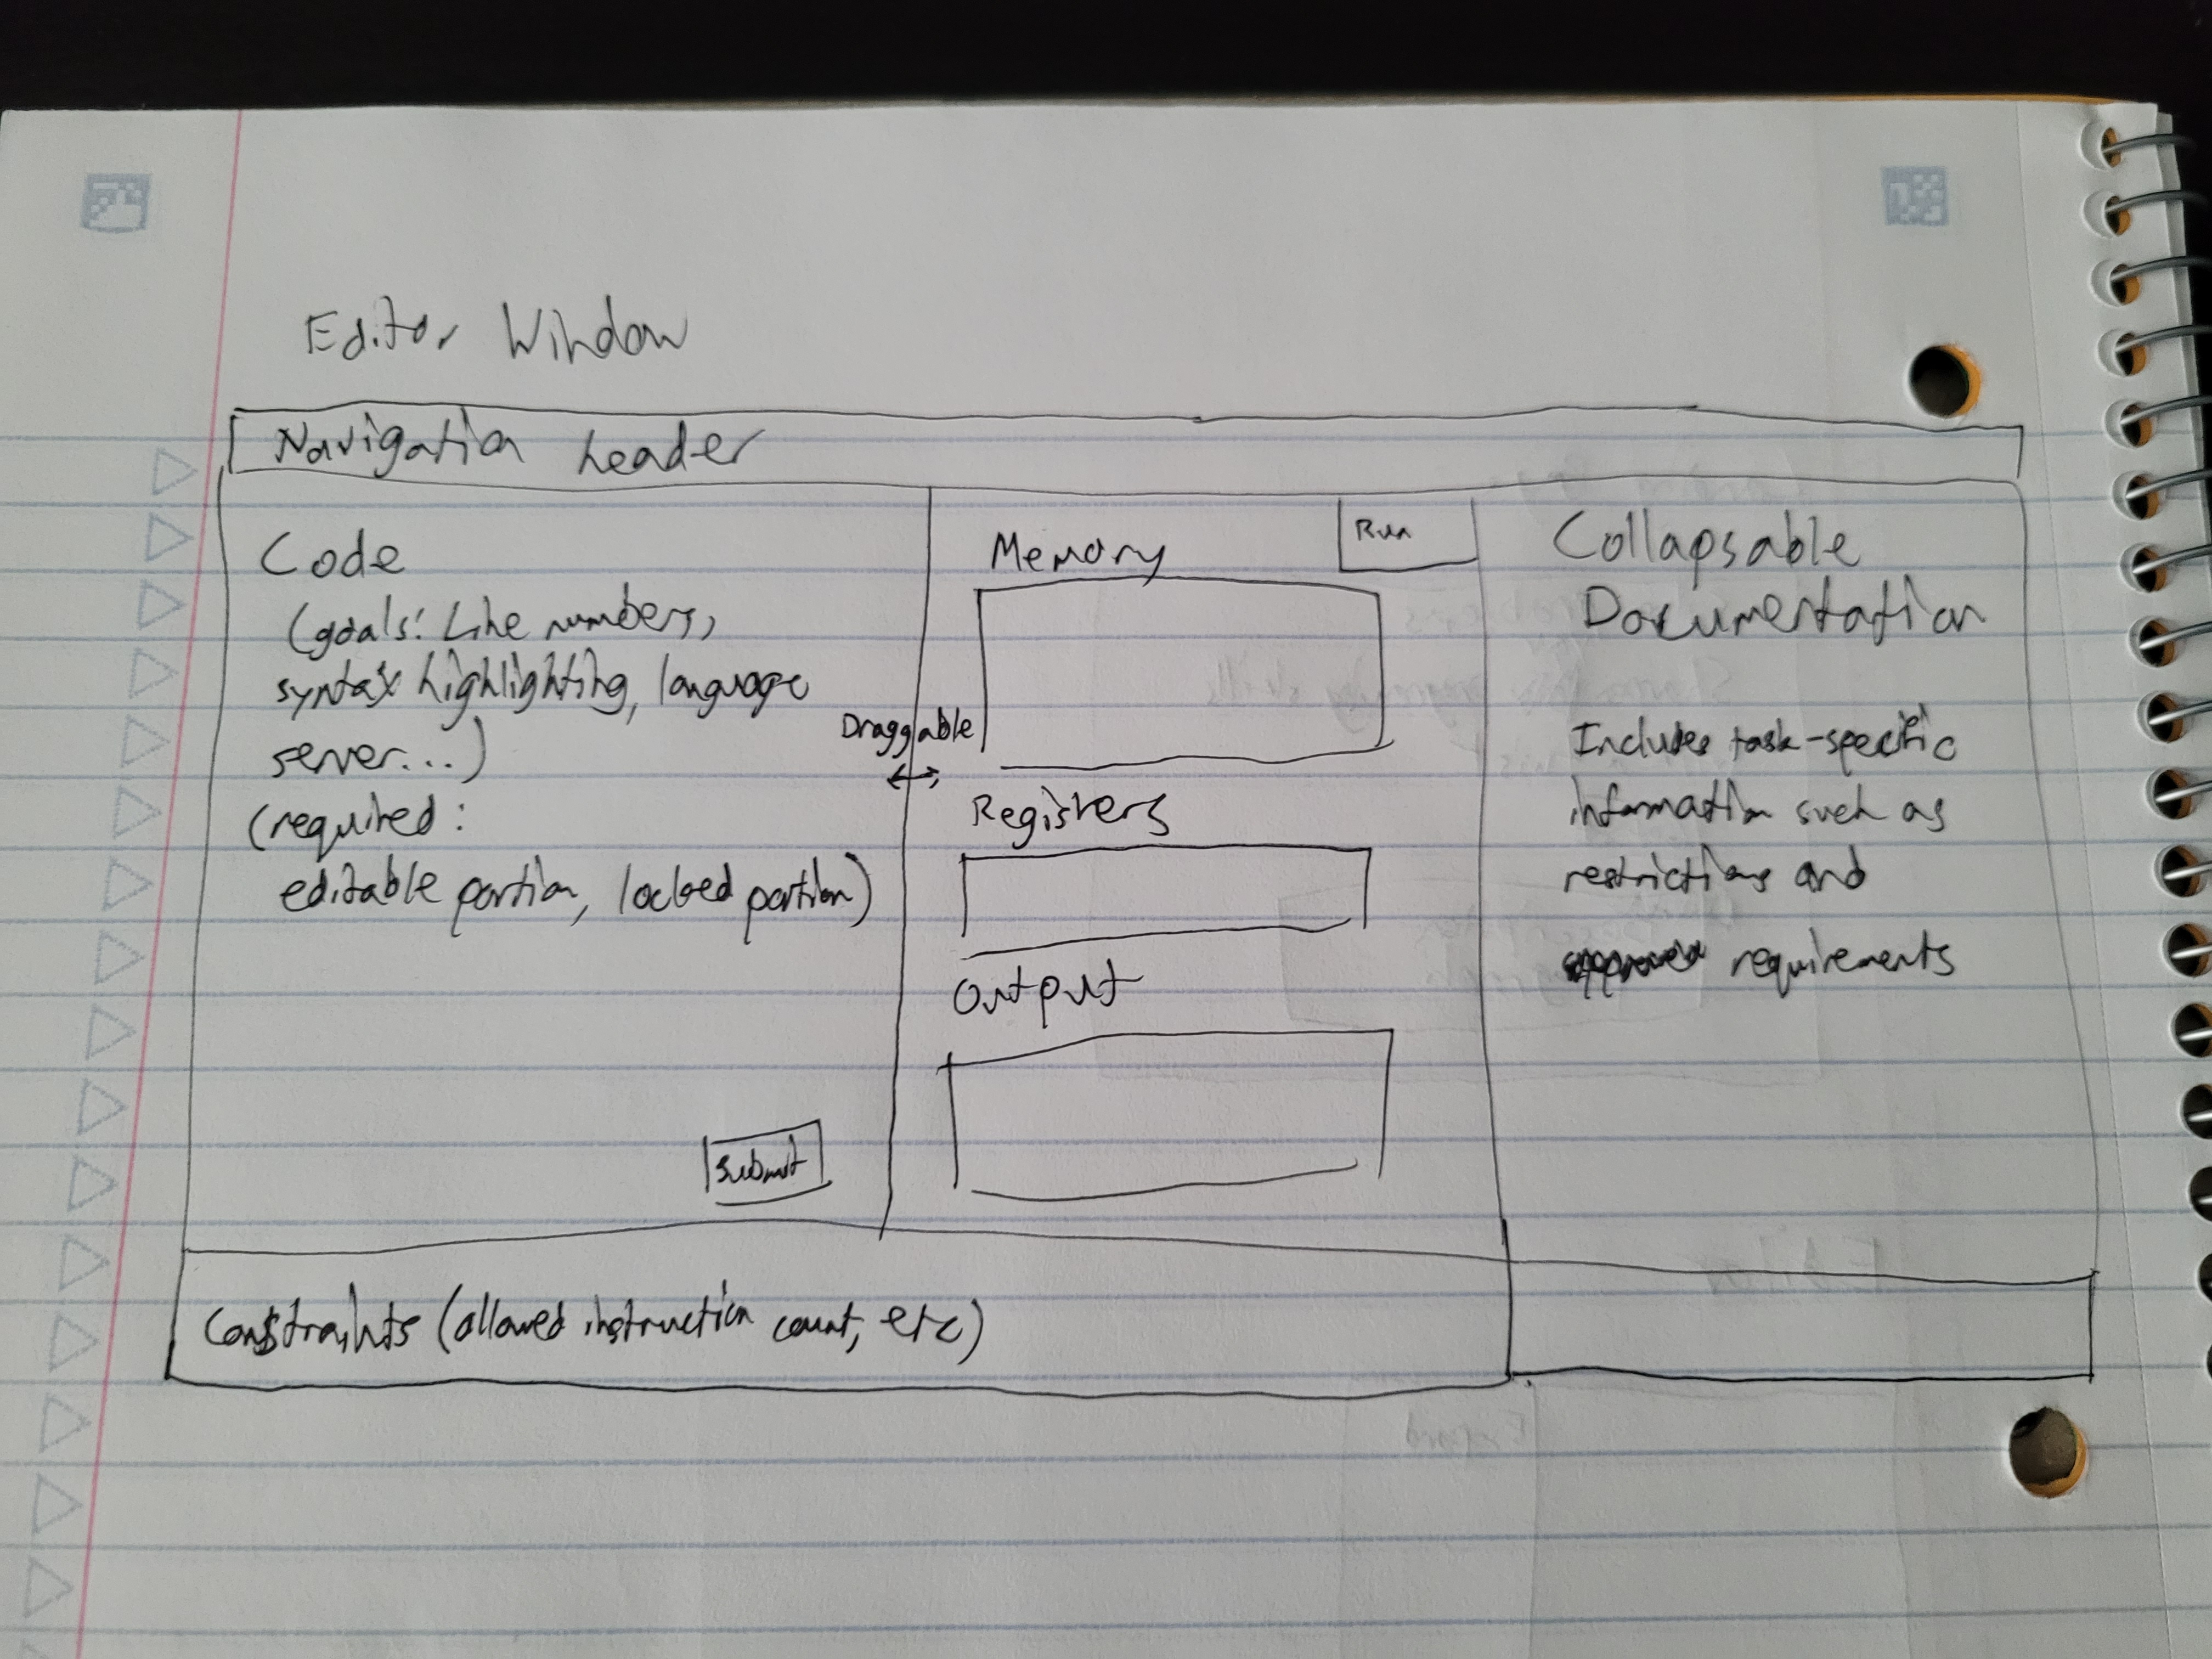 Editor Window
Navigation header
Code
(goals: Line numbers,
syntax highlighting, language
server...)
(required:
editable portion, locked portion)
Submit
Draggable
Memory
Run
Registers
Output
Collapsable
Documentation
Includes task-specific
information such as
restrictions and
requirements
Constraints (allowed instruction count, etc)